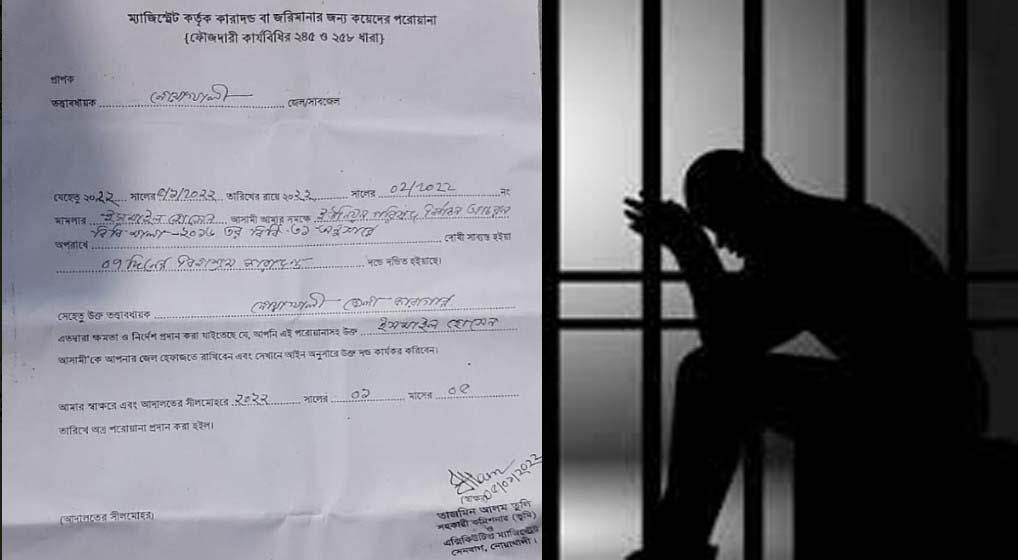 ম্যাজিস্ট্রেট কর্তৃক কারাদন্ড বা জরিমানার জন্য কয়েদের পরোয়ানা
{ফৌজদারী কার্যবিধির ২৪৫ ও ২৫৮ ধারা}
প্রাপক
তত্ত্বাবধায়ক নোয়াখালী জেল/সাবজেল
যেহেতু ২০২২ সালের তারিখের রায়ে ২০২২ সালের 02/2022 নং
মামলার ইসমাইল হোসেন আসামী আমার সমক্ষে ইউনিয়ন পরিষদ নির্বাচন আচরণ
বিধি মালা-২০১৬ এর বিধি-৩১ অনুসারে
অপরাধে দোষী সাব্যস্ত হইয়া
০৭ দিনের বিনাশ্রম কারাদন্ড দন্ডে দন্ডিত হইয়াছে।
সেহেতু উক্ত তত্ত্বাবধায়ক নোয়াখালী জেলা কারাগার
এতদ্বারা ক্ষমতা ও নির্দেশ প্রদান করা যাইতেছে যে, আপনি এই পরোয়ানাসহ উক্ত ইসমাইল হোসেন
আসামী'কে আপনার জেল হেফাজতে রাখিবেন এবং সেখানে আইন অনুসারে উক্ত দন্ড কার্যকর করিবেন।
আমার স্বাক্ষরে এবং আদালতের সীলমোহরে ২০২২ সালের ০২ মাসের ০৫
তারিখে অত্র পরোয়ানা প্রদান করা হইল।
05/02/2022
(আদালতের সীলমোহর)
সহকারী কমিশনার (ভূমি)
ও
এক্সিকিউটিভ ম্যাজিস্ট্রেট
সেনবাগ, নোয়াখালী।